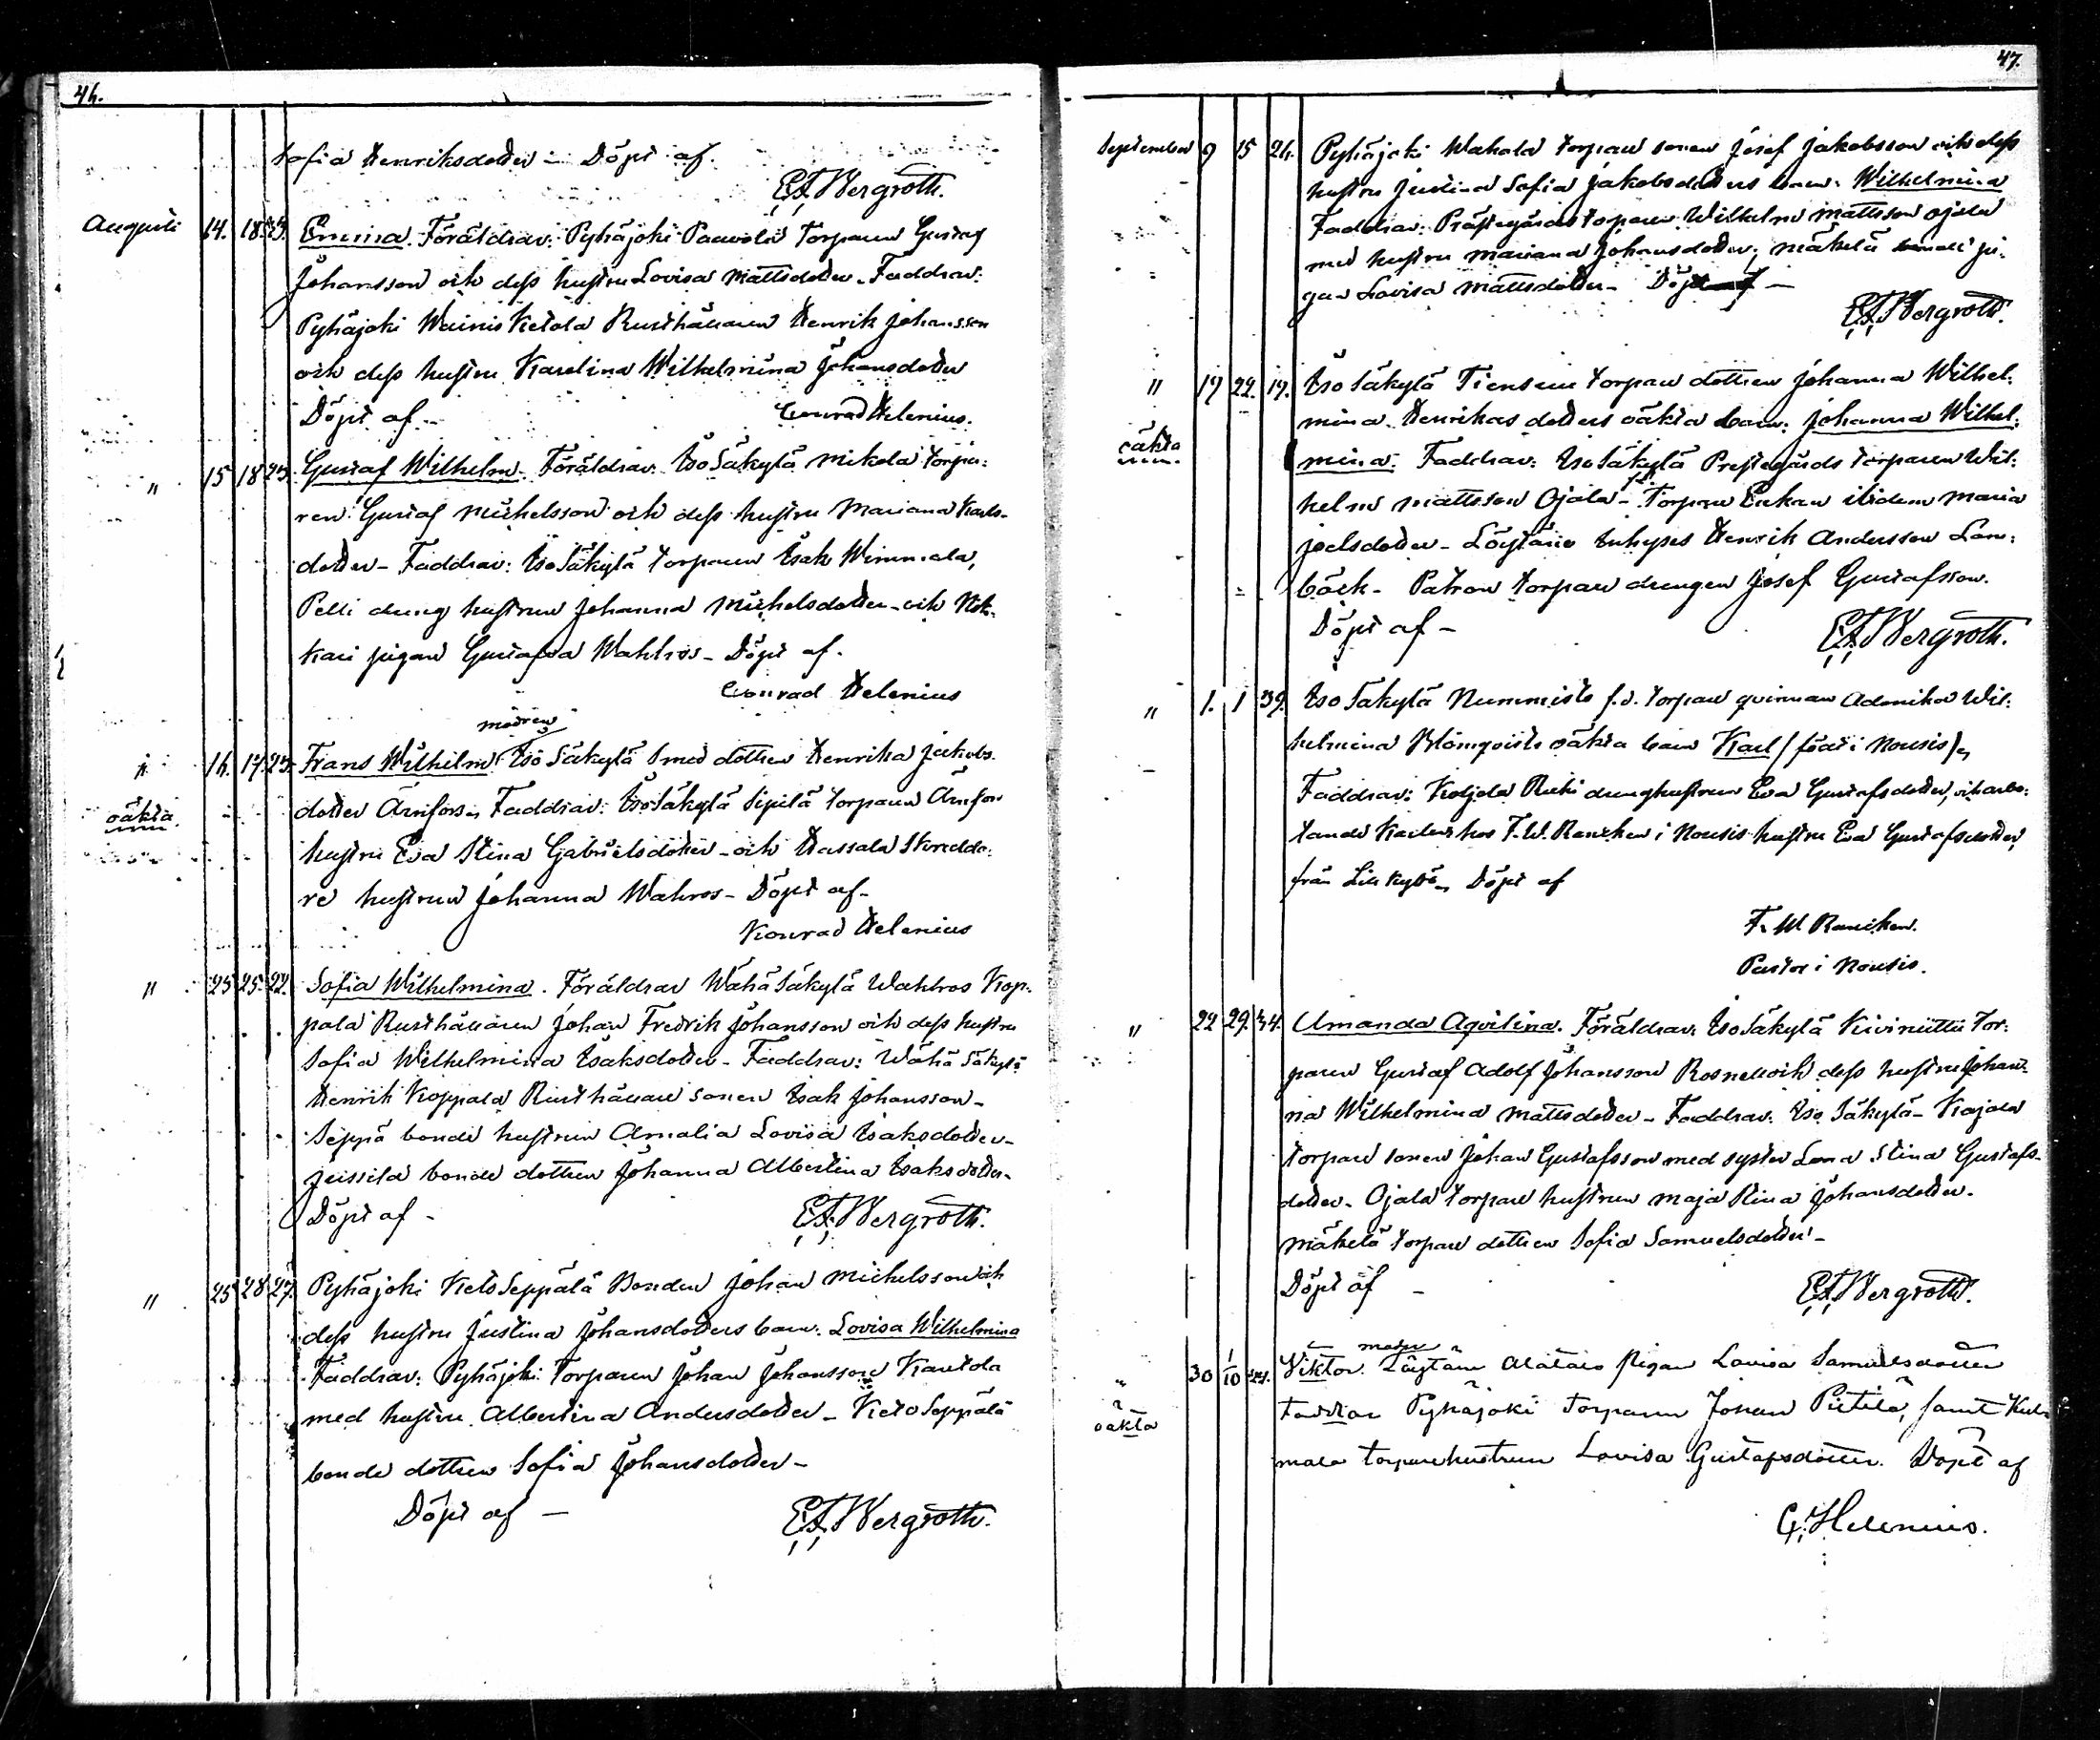 46.
Sofia Henriksdotter – Döpt af
E. F. Bergroth.
Augusti 14. 18. 23. Emma. Föräldrar: Pyhäjoki Paavola Torparen Gustaf
Johansson och dess hustru Lovisa Mattsdotter. Faddrar:
Pyhäjoki Wainio Ketola Rusthållaren Henrik Johansson
och dess hustru Karolina Wilhelmina Johansdotter
Döpt af – Conrad Helenius.
" 15 18 23. Gustaf Wilhelm. Föräldrar: Iso Säkylä Mikola torpa:
ren Gustaf Michelsson och dess hustru Mariana Karls-
dotter – Faddrar: Iso Säkylä torparen Isak Wimmala,
Pelli dreng hustrun Johanna Michelsdotter och
kari pigan Gustafva Wahlros – Döpt af.
Conrad Helenius
modren
" 16. 17. 23. Frans Wilhelm. Iso Säkylä smed dottren Henrika Jakobs-
oäkta. dotter Ärnfors. Faddrar: Iso Säkylä Sipilä torparen Ärnfors
hustru Eva Stina Gabrielsdotter – och Hassala Skredda:
re hustrun Johanna Wahros – Döpt af –
Konrad Helenius
" 25 25. 22. Sofia Wilhelmina. Föräldrar Wähä Säkylä Wahlros Kop-
pala Rusthållaren Johan Fredrik Johansson och dess hustru
Sofia Wilhelmina Isaksdotter – Faddrar: Wähä Säkylä
Henrik Koppala Rusthållare sonen Isak Johansson –
Seppä bonde hustrun Amalia Lovisa Isaksdotter –
Jussila bonde dottren Johanna Albertina Isaksdotter –
Döpt af – E. F. Bergroth.
" 25 28 27. Pyhäjoki Keto Seppälä Bonden Johan Michelsson och
dess hustru Justina Johansdotters barn: Lovisa Wilhelmina
Faddrar: Pyhäjoki Torparen Johan Johansson Kantola
med hustru Albertina Andersdotter – Keto Seppälä
bonde dottren Sofia Johansdotter –
Döpt af – E. F. Bergroth.
47.
September 9 15 26. Pyhäjoki Wahala torpare sonen Josef Jakobsson och dess
hustru Justina Sofia Jakobsdotters barn: Wilhelmina
Faddrar: Prästegårds torparen Wilhelm Mattsson Ojala
med hustru Mariana Johansdotter, Mäkelä pi:
gan Lovisa Mattsdotter – Döpt af –
E. F. Bergroth.
" 17 22. 19. Iso Säkylä Tiensuu torpare dottren Johanna Wilhel:
oäkta mina Henriksdotters oäkta barn: Johanna Wilhel:
mina. Faddrar: Iso Säkylä Prestegårds torparen Wil:
helm Mattsson Ojala – Torpare Enkan ibidem Maria
Joelsdotter – Löytäne Inhyses Henrik Andersson Lan:
bäck – Patron torpare drengen Josef Gustafsson.
Döpt af – E. F. Bergroth.
" 1. 1 39. Iso Säkylä Nummisto f.d. torpare qvinnan Adamika Wil:
helmina Blomqvists oäkta barn Karl (född i Nousis).
Faddrar: Koljola Ruki drenghustrun Eva Gustafsdotter, arbe:
tande Karlen hos F. W. Rancken i Nousis hustru Eva Gustafsdotter
från Döpt af
F. W. Rancken.
Pastor i Nousis.
" 22 29. 34. Amanda Aqvilina. Föräldrar: Iso Säkylä Kiviniitti Tor:
paren Gustaf Adolf Johansson Rosnell och dess hustru Johan-
na Wilhelmina Mattsdotter – Faddrar: Iso Säkylä – Kajala
torpare sonen Johan Gustafsson med syster Lena Stina Gustafs-
dotter – Ojala torpare hustrun Maja Stina Johansdotter.
Mäkelä torpare dottren Sofia Samuelsdotter –
Döpt af – E. F. Bergroth.
moder
" 30 1/10 24. Viktor. Löytäne Alatalo pigan Lovisa Samuelsdotter
oäkta Faddrar Pyhäjoki Torparen Johan Pietilä, samt Kul-
mala torparehustrun Lovisa Gustafsdotter. Döpt af
C. Helenius.